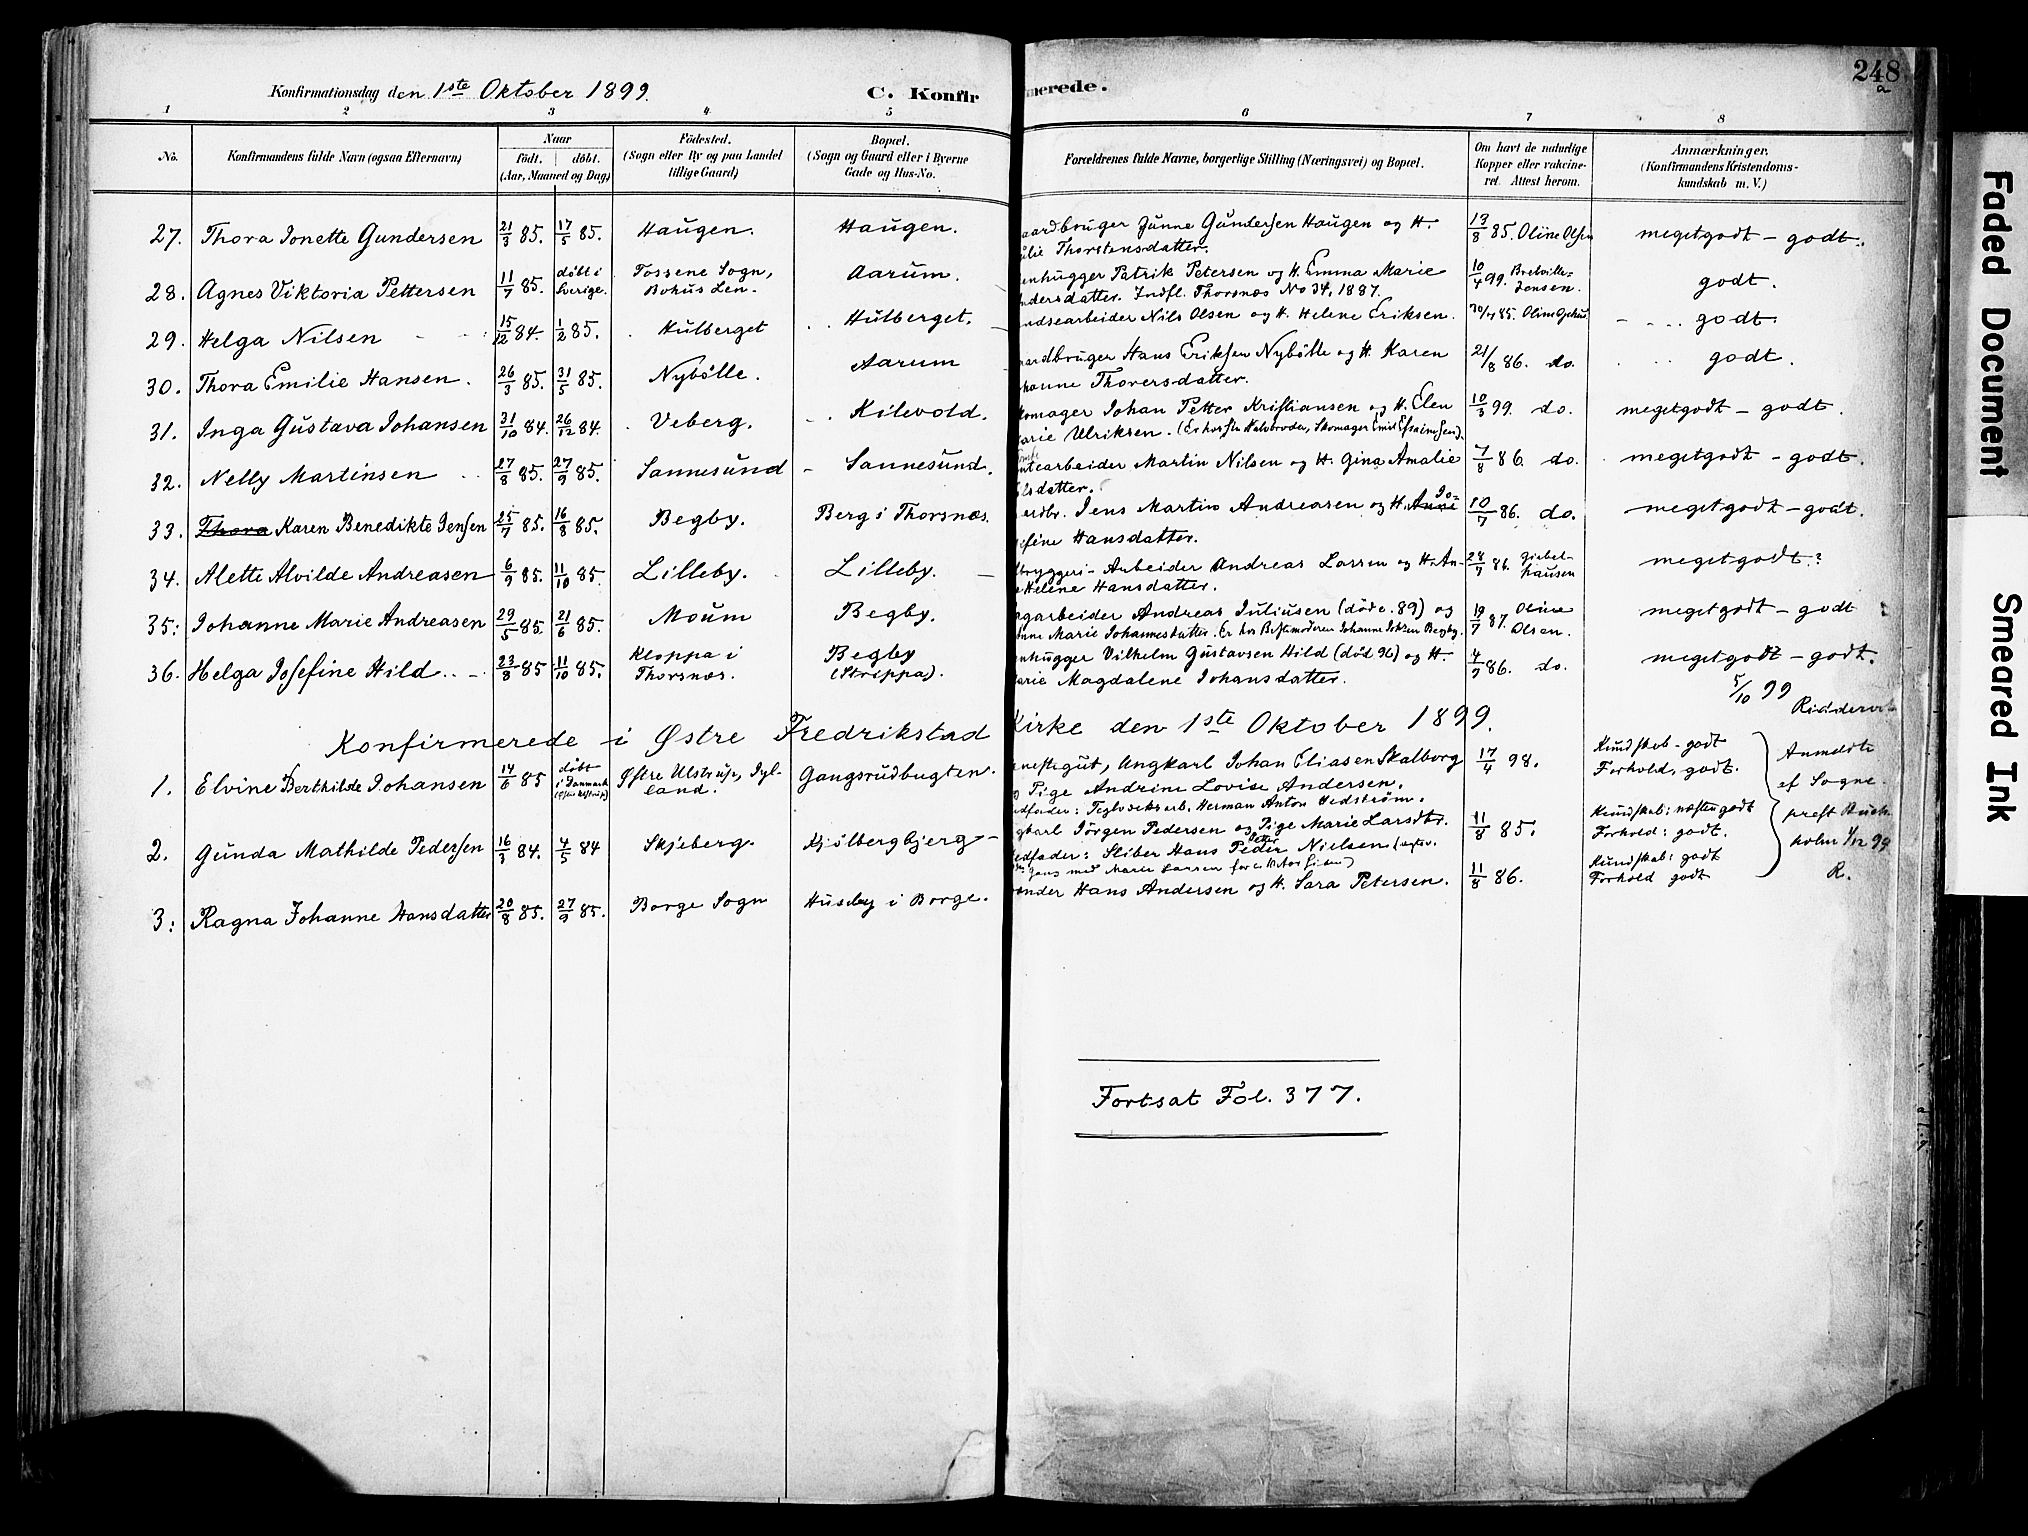 Konfirmationsdag den 1ste Oktober 1899.
C. Konfir
merede.
248
a
1 2 3 4 5 6 7 8
No. Konfirmandens fulde Navn (ogsaa Efternavn) Naar født. døbt. (Aar, Maaned og Dag) Fødested. (Sogn eller By og paa Landet tillige Gaard) Bopæl. (Sogn og Gaard eller i Byerne Gade og Hus-No. Forældrenes fulde Navne, borgerlige Stilling (Næringsvei) og Bopæl. Om havt de naturlige Kopper eller vakcineret. Attest herom. Anmærkninger. (Konfirmandens Kristendomskundskab m. V.)
27. Thora Jonette Gundersen 21/3 85. 17/5 85. Haugen. Haugen. aardbruger Junne Gundersen Haugen og H. 13/8 85. Oline Olsen megetgodt - godt.
ulie Thorstensdatter.
28. Agnes Viktoria Pettersen 11/7 85. døbt i Sverige. Tossene Sogn, Bohus Len. Aarum. enhugger Patrik Petersen og H. Emma Marie 10/4 99. Jensen. godt.
ndersdatter. Indfl. Thorsnæs No 34, 1887.
29. Helga Nilsen 15/12 84. 1/2 85. Hulberget Hulberget. ndsearbeider Nils Olsen og H. Helene Eriksen. 85. godt.
30. Thora Emilie Hansen. 26/3 85. 31/5 85. Nybølle. Aarum aardbruger Hans Eriksen Nybølle og H. Karen 21/8 86. do. godt.
hanne Thoversdatter.
31. Inga Gustava Johansen 31/10 84. 26/12 84. Veberg. Kilevold. komager Johan Petter Kristiansen og H. Elen 10/3 99. do. megetgodt - godt.
arie Ulriksen. (Er hos Skomager Emil Efraimsen).
32. Nelly Martinsen 27/8 85. 27/9 85. Sannesund Sannesund. tearbeider Martin Nilsen og H. Gina Amalie 7/8 86. do. megetgodt - godt.
lsdatter.
33. Thora Karen Benedikte Jensen 25/7 85. 16/8 85. Begby. Berg i Thorsnæs. Jens Martin Andreasen og H. Anne Jo= 10/7 86. do. megetgodt - godt.
sefine Hansdatter.
34. Alette Alvilde Andreasen 6/9 85. 11/10 85. Lilleby. Lilleby. lbryggeri-Arbeider Andreas Larsen og H. An- 86. megetgodt.
Helene Hansdatter.
35. Johanne Marie Andreasen 29/5 85. 21/6 85. Moum Begby. garbeider Andreas Juliusen (død c. 89) og 19/7 87. Oline Olsen. megetgodt - godt
nne Marie Johannesdatter. Er hos Bestemoderen Johanne Begby.
36. Helga Josefine Hild 23/8 85 11/10 85. Kloppa i Thorsnæs. Begby (Strippa). enhugger Vilhelm Gustavsen Hild (død 96) og H. 4/9 86. do. megetgodt - godt.
arie Magdalene Johansdatter.
5/10 99
Riddervold
Konfirmerede i Østre Fredrikstad Kirke den 1ste Oktober 1899.
1. Elvine Berthilde Johansen 14/6 85 døbt i Danmark Østre Ulstrup, Jylland. Gangsrudbugten. Ungkarl Johan Eliasen Skalborg 17/4 98. Kundskab - godt
Forhold, godt.
Pige Andrine Lovise Andersen.
edfader: Herman Anton Hedstrøm.
2. Gunda Mathilde Pedersen 16/3 84. 4/5 84 Skjeberg. Kjølbergbjerg gkarl Jørgen Pedersen og Pige Marie Larsdtr. 11/8 85. Kundskab: næsten godt
Forhold: godt.
edfader: Sliber Hans Peder Nielsen
3. Ragna Johanne Hansdatter 20/8 85. 27/9 85. Borge Sogn Huseby i Borge. Hans Andersen og H. Sara Petersen. 11/8 86. Kundskab: godt
Forhold godt
Anmeldte
af Sogne-
prest
holm 1/12 99
R.
Fortsat Fol. 377.
Faded Document
Smeared Ink